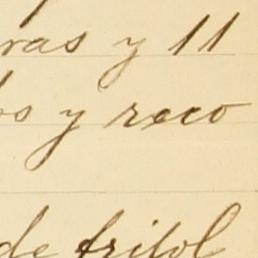 ras y 11
os y reco
de frijol